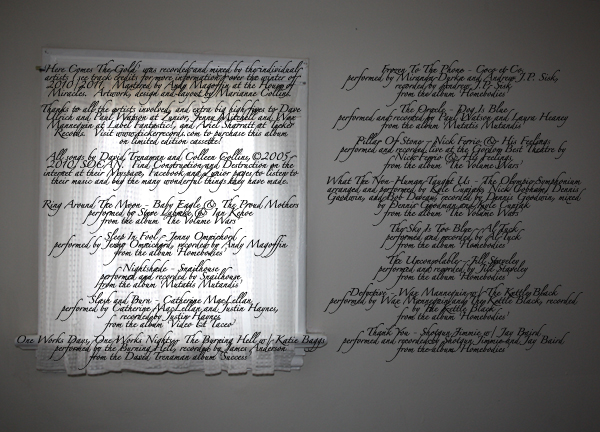 'Here Comes The Gold' was recorded and mixed by the individual
artists (see track credits for more information) over the winter of
2010/2011. Mastered by Andy Magoffin at the House of
Miracles. Artwork, design and layout by Marianne Collins.
Thanks to all the artists involved and extra big high fives to Dave
Ullrich and Paul Watson at Zunior, Jenny Mitchell and Wax
Mannequin at Label Fantastic!, and Ariel Sharratt at
Records. Visit www. .com to purchase this album
on limited edition cassette!
All songs by David Trenaman and Colleen Collins, © 2005-
2010 SOCAN. Find Construction and Destruction on the
internet at their Myspace, Facebook and Zunior pages to listen to
their music and buy the many wonderful things they have made.
Ring Around The Moon - Baby Eagle & The Proud Mothers
performed by Steve Lambke & Ian Kehoe
from the album 'The Volume Wars'
Sleep In Fool - Jenny Omnichord
performed by Jenny Omnichord, recorded by Andy Magoffin
from the album 'Homebodies'
Nightshade - Snailhouse
performed and recorded by Snailhouse
from the album 'Mutatis Mutandis'
Slash and Burn - Catherine MacLellan
performed by Catherine MacLellan and Justin Haynes,
recorded by Justin Haynes
from the album 'Video et Taceo'
One Works Days, One Works Nights - The Burning Hell w/ Katie Baggs
performed by the Burning Hell, recorded by James Anderson
from the David Trenaman album 'Success'
Frozen To The Phone - Coco et Co.
performed by Miranda Durka and Andrew J.P. Sisk,
recorded by Andrew J.P. Sisk
from the album 'Homebodies'
The Oracle - Dog Is Blue
performed and recorded live at the Gordon Best Theatre by
Paul Watson and Laura Heaney
from the album 'Mutatis Mutandis'
Pillar Of Stone - Nick Ferrio & His Feelings
performed and recorded by
Nick Ferrio & His Feelings
from the album 'The Volume Wars'
What The Non-Human Taught Us - The Olympic Symphonium
arranged and performed by Kyle Cunjak, Nick Cobham, Dennis
Goodwin, and Bob Deveau, recorded by Dennis Goodwin, mixed
by Dennis Goodwin and Kyle Cunjak
from the album 'The Volume Wars'
The Sky Is Too Blue - Al Tuck
performed and recorded by Al Tuck
from the album 'Homebodies'
The Unconsolably - Jill Staveley
performed and recorded by Jill Staveley
from the album 'Homebodies'
Detective - Wax Mannequin w/ The Kettle Black
performed by Wax Mannequin and The Kettle Black, recorded
by The Kettle Black
from the album 'Homebodies'
Thank You - Shotgun Jimmie w/ Jay Baird
performed and recorded by Shotgun Jimmie and Jay Baird
from the album 'Homebodies'